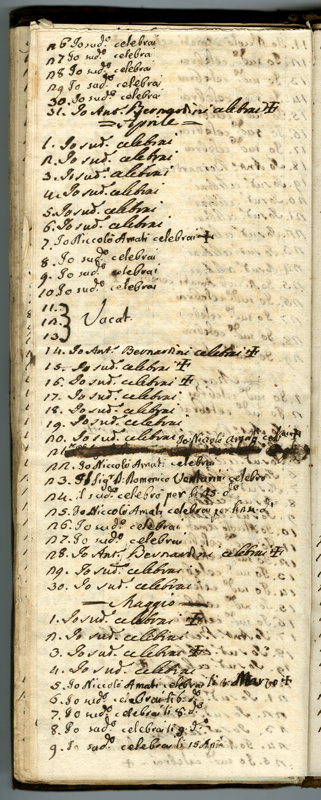 26. Io sud.º celebrai
27 Io sud.º celebrai
28 Io sud.º celebrai
29 Io sud.º celebrai
30. Io sud.º celebrai
31. Io Ant.º Bernardini celebrai ✠
= Aprile =
1. Io sud.º celebrai
2. Io sud.º celebrai
3. Io sud.º celebrai
4. Io sud.º celebrai
5. Io sud.º celebrai
6. Io sud.º celebrai
7. Io Niccolò Amati celebrai ✠
8. Io sud.º celebrai
9. Io sud.º celebrai
10 Io sud.º celebrai
11.
12. Vacat.
13
14. Io Ant.º Bernardini celebrai ✠
15. Io sud.º celebrai ✠
16. Io sud.º celebrai ✠
17. Io sud.º celebrai
18. Io sud.º celebrai
19. Io sud.º celebrai
20. Io sud.º celebrai
21 Io Niccolò Amati
22. Io Niccolò Amati celebrai
23. Il Sig.r D. Domenico Venturini celebrò
24. il sud.º celebrò per li 25. d.º
25. Io Niccolò Amati celebrai per li
26. Io sud.º celebrai
27. Io sud.º celebrai
28. Io Ant.º Bernardini celebrai ✠
29. Io sud.º celebrai
30. Io sud.º celebrai
— Maggio —
1. Io sud.º celebrai ✠
2. Io sud.º celebrai
3. Io sud.º celebrai ✠
4. Io sud.º celebrai
5. Io Niccolò Amati celebrai li Marzo ✠
6. Io sud.º celebrai li 6. d.º
7. Io sud.º celebrai li 8. d.º
8. Io sud.º celebrai li 9. d.º
9. Io sud.º celebrai li 15 Aple